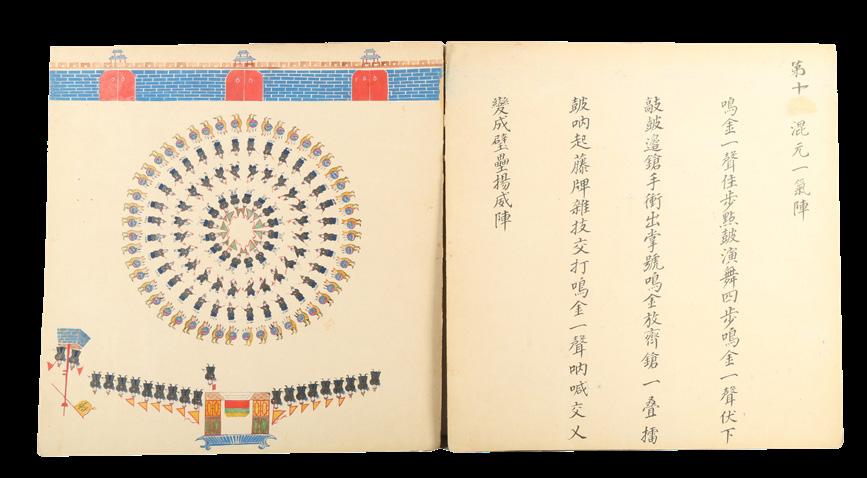 第十 混元一氣陣
鳴金一聲住步點皷演舞四步鳴金一聲伏下
敲皷邉鎗手衝出掌號鳴金放齊鎗一叠擂
皷吶起藤牌雜技交打鳴金一聲吶喊交乂
變成壁壘揚威陣